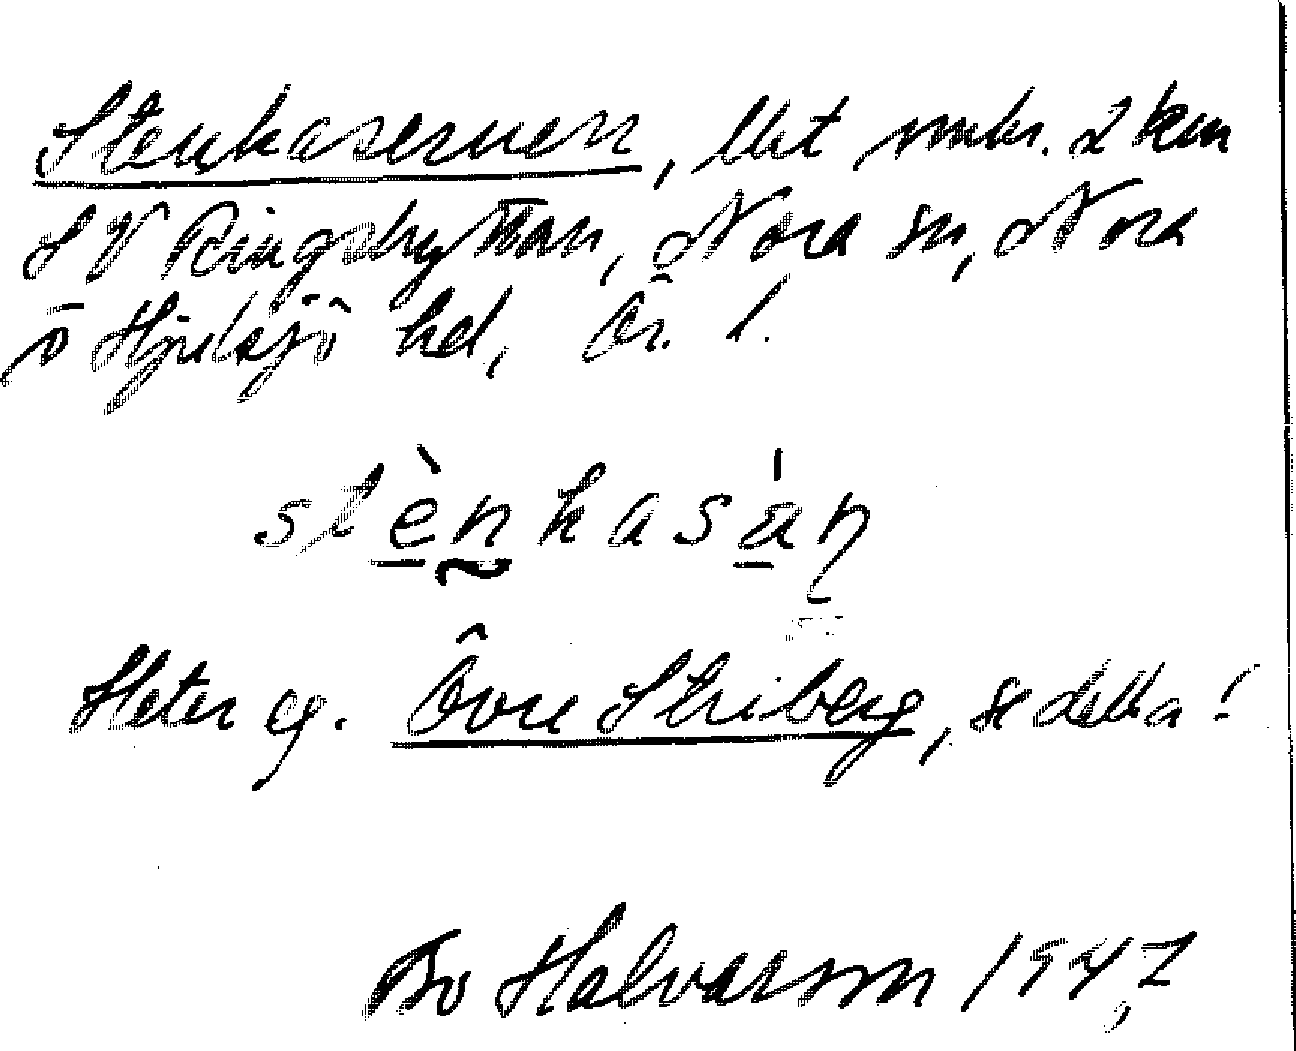 Stenkasernen, lht omkr. 2 km
SV Ringshyttan, Nora sn, Nora
o Hjulsjö hd, Ör. l.
stènkasà̩ɳ
Heter eg. Övre Striberg, se detta!
Bo Halvarson 1947